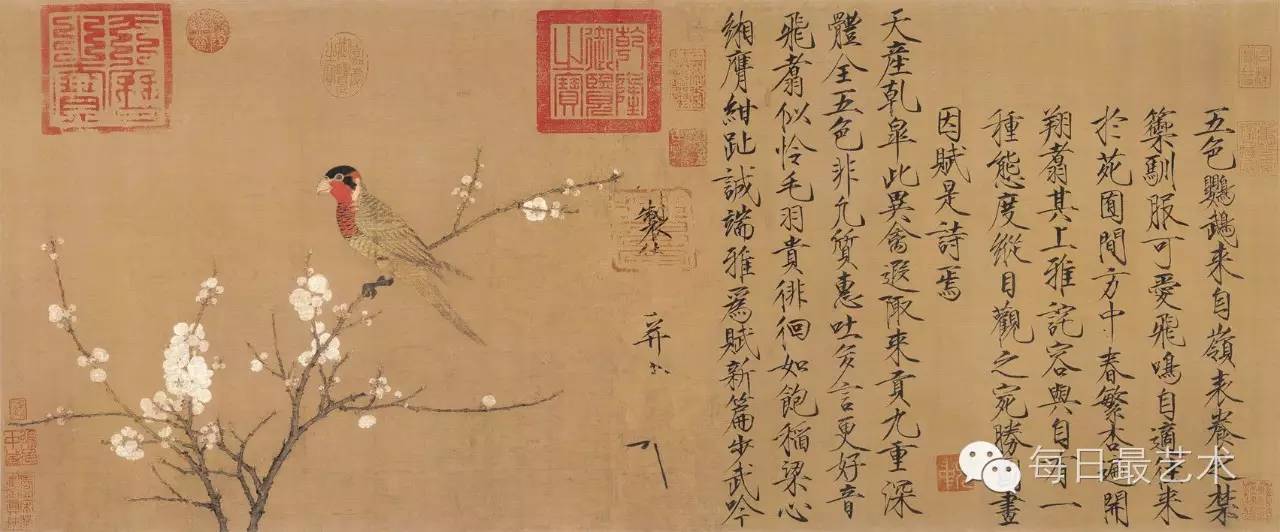 五色鸚鵡来自嶺表養之禁
籞馴服可愛飛鳴自適往来
於苑囿間方中春繁杏遍開
翔翥其上雅詫容與自有一
種態度縱目觀之宛勝圖畫
因賦是詩焉
天産乾皋此異禽遐陬来貢九重深
體全五色非凡質惠吐多言更好音
飛翥似怜毛羽貴徘徊如飽稻粱心
緗膺紺趾誠端雅為賦新篇步武吟
製
乾隆御覽之寶
每日最艺术